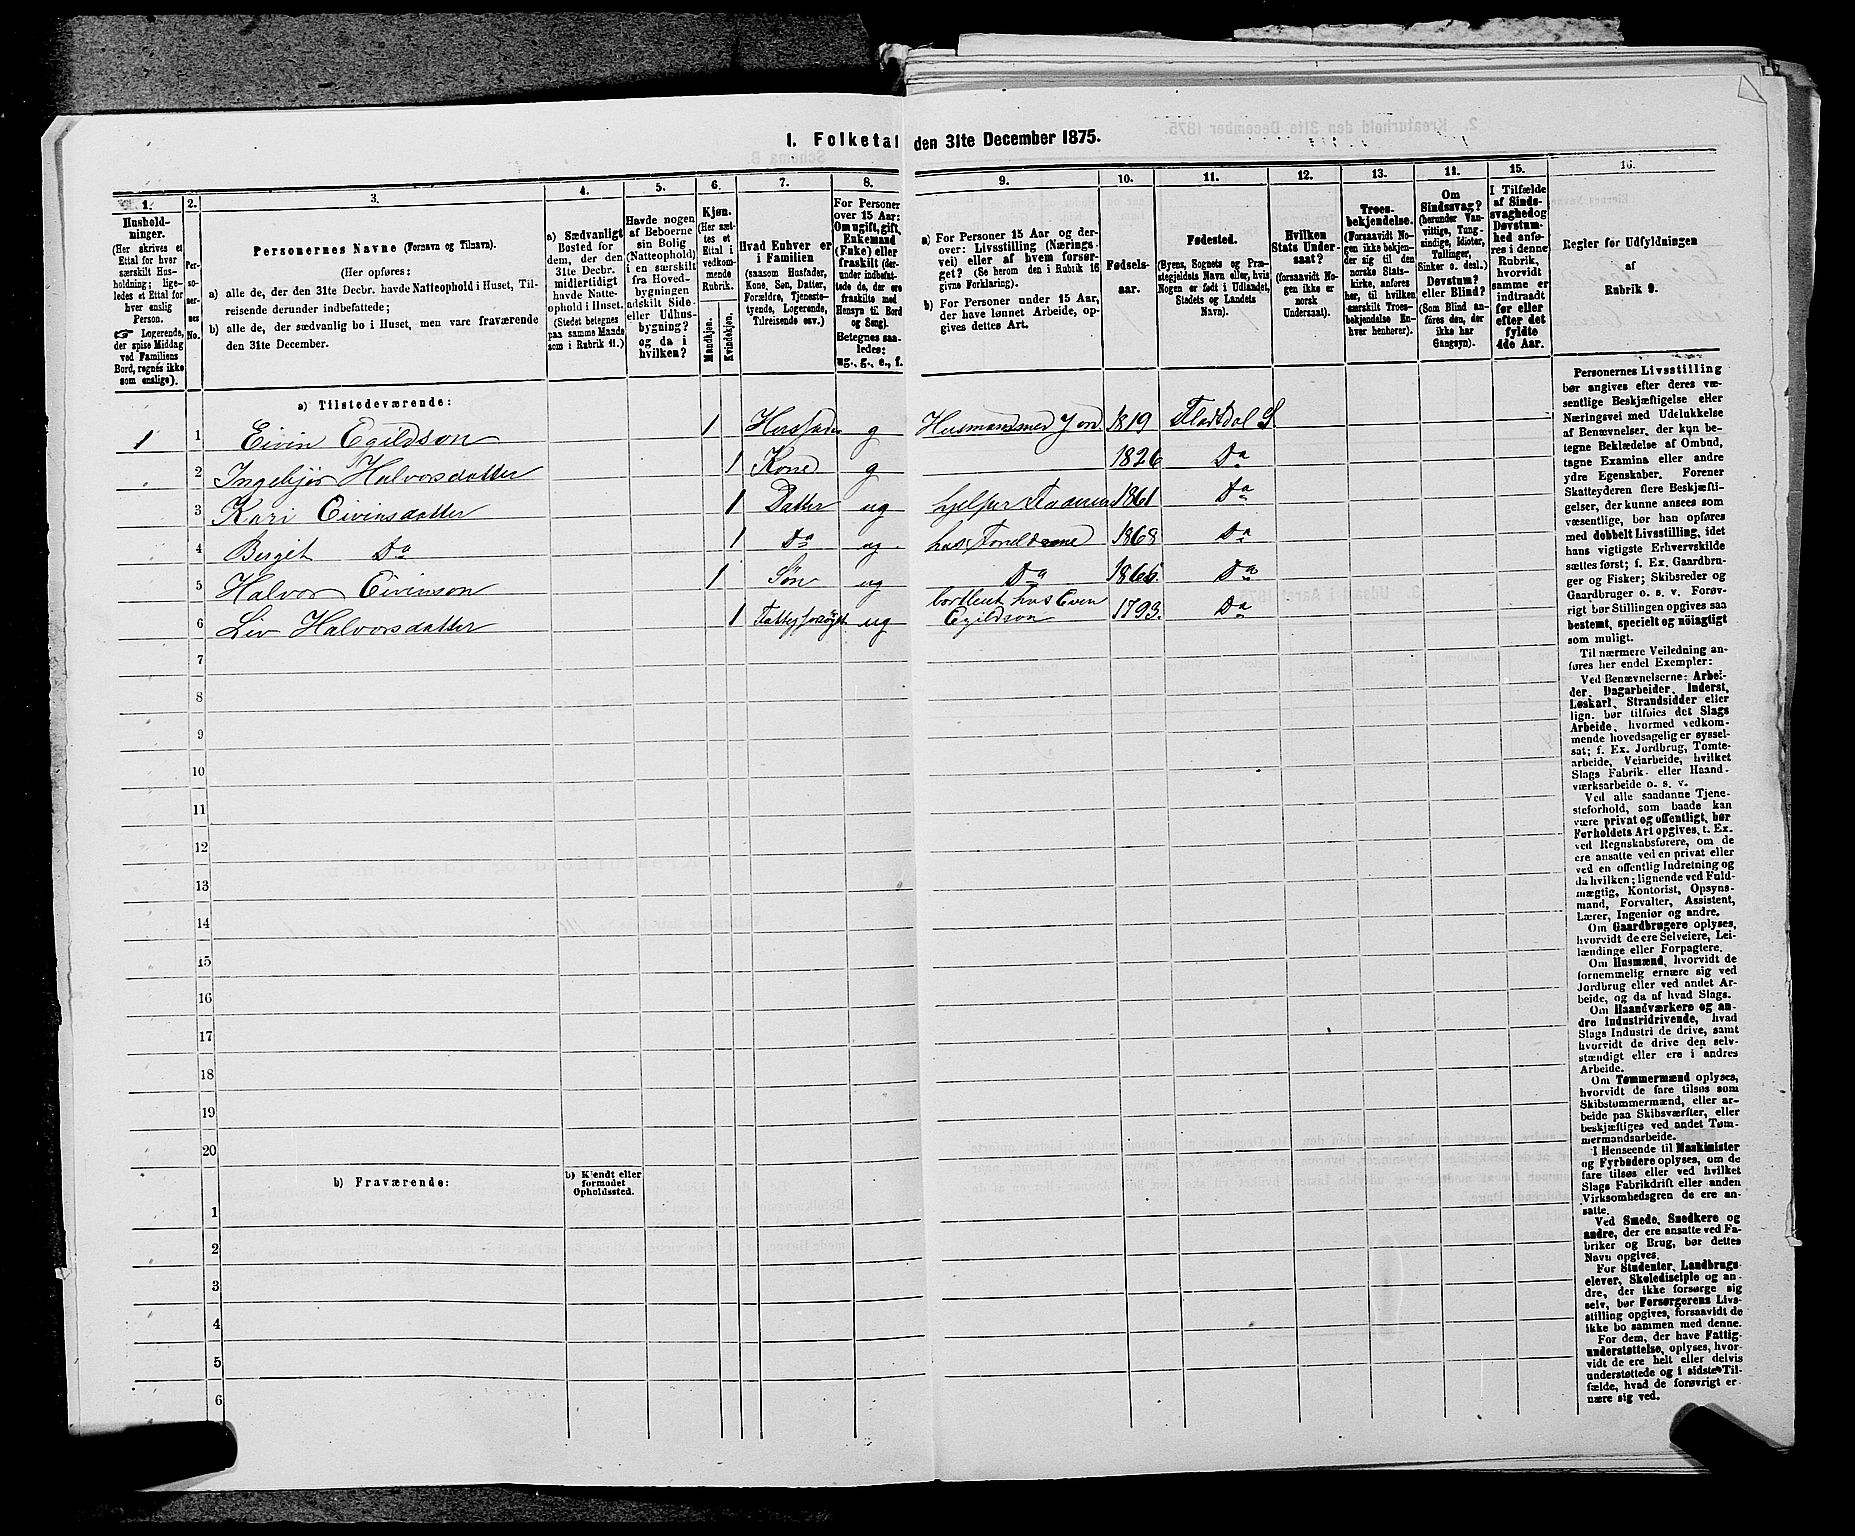 I. Folketal den 31te December 1875.
1.
Hushold-
ninger.
(Her skrives et
Ettal for hver
særskilt Hus-
holdning; lige-
ledes et Ettal for
hver enslig
Person.
☞ Logerende,
der spise Middag
ved Familiens
Bord, regnes ikke
som enslige).
2.
Per-
so-
ner-
nes
No.
3.
Personernes Navne (Fornavn og Tilnavn).
(Her opføres:
a) alle de, der den 31te Decbr. havde Natteophold i Huset, Til-
reisende derunder indbefattede;
b) alle de, der sædvanlig bo i Huset, men vare fraværende
den 31te December.
4.
a) Sædvanligt
Bosted for
dem, der den
31te Decbr.
midlertidigt
havde Natte-
ophold i Huset.
(Stedet betegnes
paa samme Maade
som i Rubrik 11.)
5.
Havde nogen
af Beboerne
sin Bolig
(Natteophold)
i en særskilt
fra Hoved-
bygningen
adskilt Side-
eller Udhus-
bygning?
og da i
hvilken?
6.
Kjøn.
(Her sæt-
tes et
Ettal i
vedkom-
mende
Rubrik.
Mandkjøn.
Kvindekjøn.
7.
Hvad Enhver er
i Familien
(saasom Husfader,
Kone, Søn, Datter,
Forældre, Tjeneste-
tyende, Logerende,
Tilreisende osv.)
8.
For Personer
over 15 Aar:
Om ugift, gift,
Enkemand
(Enke) eller
fraskilt (der-
under indbefat-
tede de, der ere
fraskilte med
Hensyn til Bord
og Seng).
Betegnes saa-
ledes:
ug., g., e., f.
9.
a) For Personer 15 Aar og der-
over: Livsstilling (Nærings-
vei) eller af hvem forsør-
get? (Se herom den i Rubrik 16
givne Forklaring).
b) For Personer under 15 Aar,
der have lønnet Arbeide, op-
gives dettes Art.
10.
Fødsels-
aar.
11.
Fødested.
(Byens, Sognets og Præ-
stegjeldets Navn eller, hvis
Nogen er født i Udlandet,
Stedets og Landets
Navn).
12.
Hvilken
Stats Under-
saat?
(forsaavidt No-
gen ikke er
norsk
Undersaat).
13.
Troes-
bekjendelse.
(Forsaavidt No-
gen ikke bekjen-
der sig til den
norske Stats-
kirke, anføres
her, til hvilken
særskilt Troes-
bekjendelse En-
hver henhører).
14.
Om
Sindssvag?
(herunder Van-
vittige, Tung-
sindige, Idioter,
Tullinger,
Sinker o. desl.)
Døvstum?
eller Blind?
(Som Blind an-
føres den, der
ikke har
Gangsyn).
15.
I Tilfælde
af Sinds-
svaghed og
Døvstum-
hed anfø-
res i denne
Rubrik,
hvorvidt
samme er
indtraadt
før eller
efter det
fyldte
4de Aar.
16.
Regler for Udfyldningen
af
Rubrik 9.
a) Tilstedeværende:
1 1 Eivin Egildson 1 Husfader g Husmand med Jord 1819 Fladdal S.
2 Ingebjør Halvorsdatter 1 Kone g 1826 Do
3 Kari Eivinsdatter 1 Datter ug hjelper Faderen 1861 Do
4 Birgit Do 1 Do ug hos Foreldrene 1868 Do
5 Halvor Eivinson 1 Søn ug Do 1866 Do
6 Liv Halvorsdatter 1 ug bortleiet hos Even Egildson 1793. Do
7
8
9
10
11
12
13
14
15
16
17
18
19
20
b) Fraværende:
b) Kjendt eller
formodet
Opholdssted.
1
2
3
4
5
6
Personernes Livsstilling
bør angives efter deres væ-
sentlige Beskjæftigelse eller
Næringsvei med Udelukkelse
af Benævnelser, der kun be-
tegne Beklædelse af Ombud,
tagne Examina eller andre
ydre Egenskaber. Forener
Skatteyderen flere Beskjæfti-
gelser, der kunne ansees som
væsentlige, bør han opføres
med dobbelt Livsstilling, idet
hans vigtigste Erhvervskilde
sættes først; f. Ex. Gaardbru-
ger og Fisker; Skibsreder og
Gaardbruger o. s. v. Forøv-
rigt bør Stillingen opgives saa
bestemt, specielt og nöiagtigt
som muligt.
Til nærmere Veiledning an-
føres her endel Exempler:
Ved Benævnelserne: Arbei-
der, Dagarbeider, Inderst,
Løskarl, Strandsidder eller
lign. bør tilføies det Slags
Arbeide, hvormed vedkom-
mende hovedsagelig er syssel-
sat; f. Ex. Jordbrug, Tomte-
arbeide, Veiarbeide, hvilket
Slags Fabrik- eller Haand-
værksarbeide o. s. v.
Ved alle saadanne Tjene-
steforhold, som baade kan
være privat og offentligt, bør
Forholdets Art opgives, t. Ex.
ved Regnskabsførere, om de
ere ansatte ved en privat eller
ved en offentlig Indretning og
da hvilken; lignende ved Fuld-
mægtig, Kontorist, Opsyns-
mand, Forvalter, Assistent,
Lærer, Ingeniør og andre.
Om Gaardbrugere oplyses,
hvorvidt de ere Selveiere, Lei-
lændinge eller Forpagtere.
Om Husmænd, hvorvidt de
fornemmelig ernære sig ved
Jordbrug eller ved andet Ar-
beide, og da af hvad Slags.
Om Haandværkere og an-
dre Industridrivende, hvad
Slags Industri de drive, samt
hvorvidt de drive den selv-
stændigt eller ere i andres
Arbeide.
Om Tømmermænd oplyses,
hvorvidt de fare tilsøs som
Skibstømmermænd, eller ar-
beide paa Skibsværfter, eller
beskjæftiges ved andet Tøm-
mermandsarbeide.
I Henseende til Maskinister
og Fyrbødere oplyses, om de
fare tilsøs eller ved hvilket
Slags Fabrikdrift eller anden
Virksomhedsgren de ere an-
satte.
Ved Smede, Snedkere og
andre, der ere ansatte ved Fa-
briker og Brug, bør dettes
Navn opgives.
For Studenter, Landbrugs-
elever, Skoledisciple og an-
dre, der ikke forsørge sig
selv, bør Forsørgerens Livs-
stilling opgives, forsaavidt de
ikke bo sammen med denne.
For dem, der have Fattig-
understøttelse, oplyses, hvor-
vidt de ere helt eller delvis
understøttede og i sidste Til-
fælde, hvad de forøvrigt er-
nære sig ved.